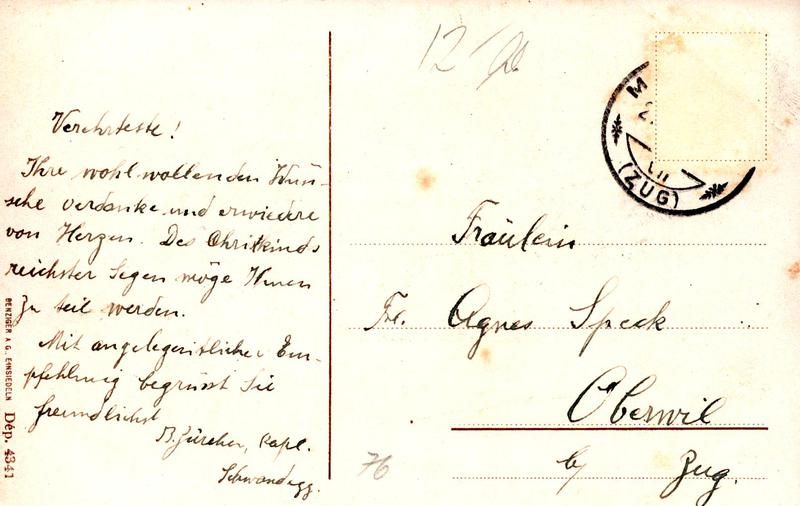 Verehrteste!
Ihre wohlwollenden Wün-
sche verdanke und erwiedere
von Herzen. Des Christkinds
reichster Segen möge Ihnen
zu teil werden.
Mit angelegentlicher Em-
pfehlung begrüsst Sie
freundlichst
B. Zürcher, Kapl.
Schwandegg.
BENZIGER A G., EINSIEDELN Dép. 4341
12
76
M
(ZUG)
Fräulein
Frl. Agnes Speck
Oberwil
b/ Zug.